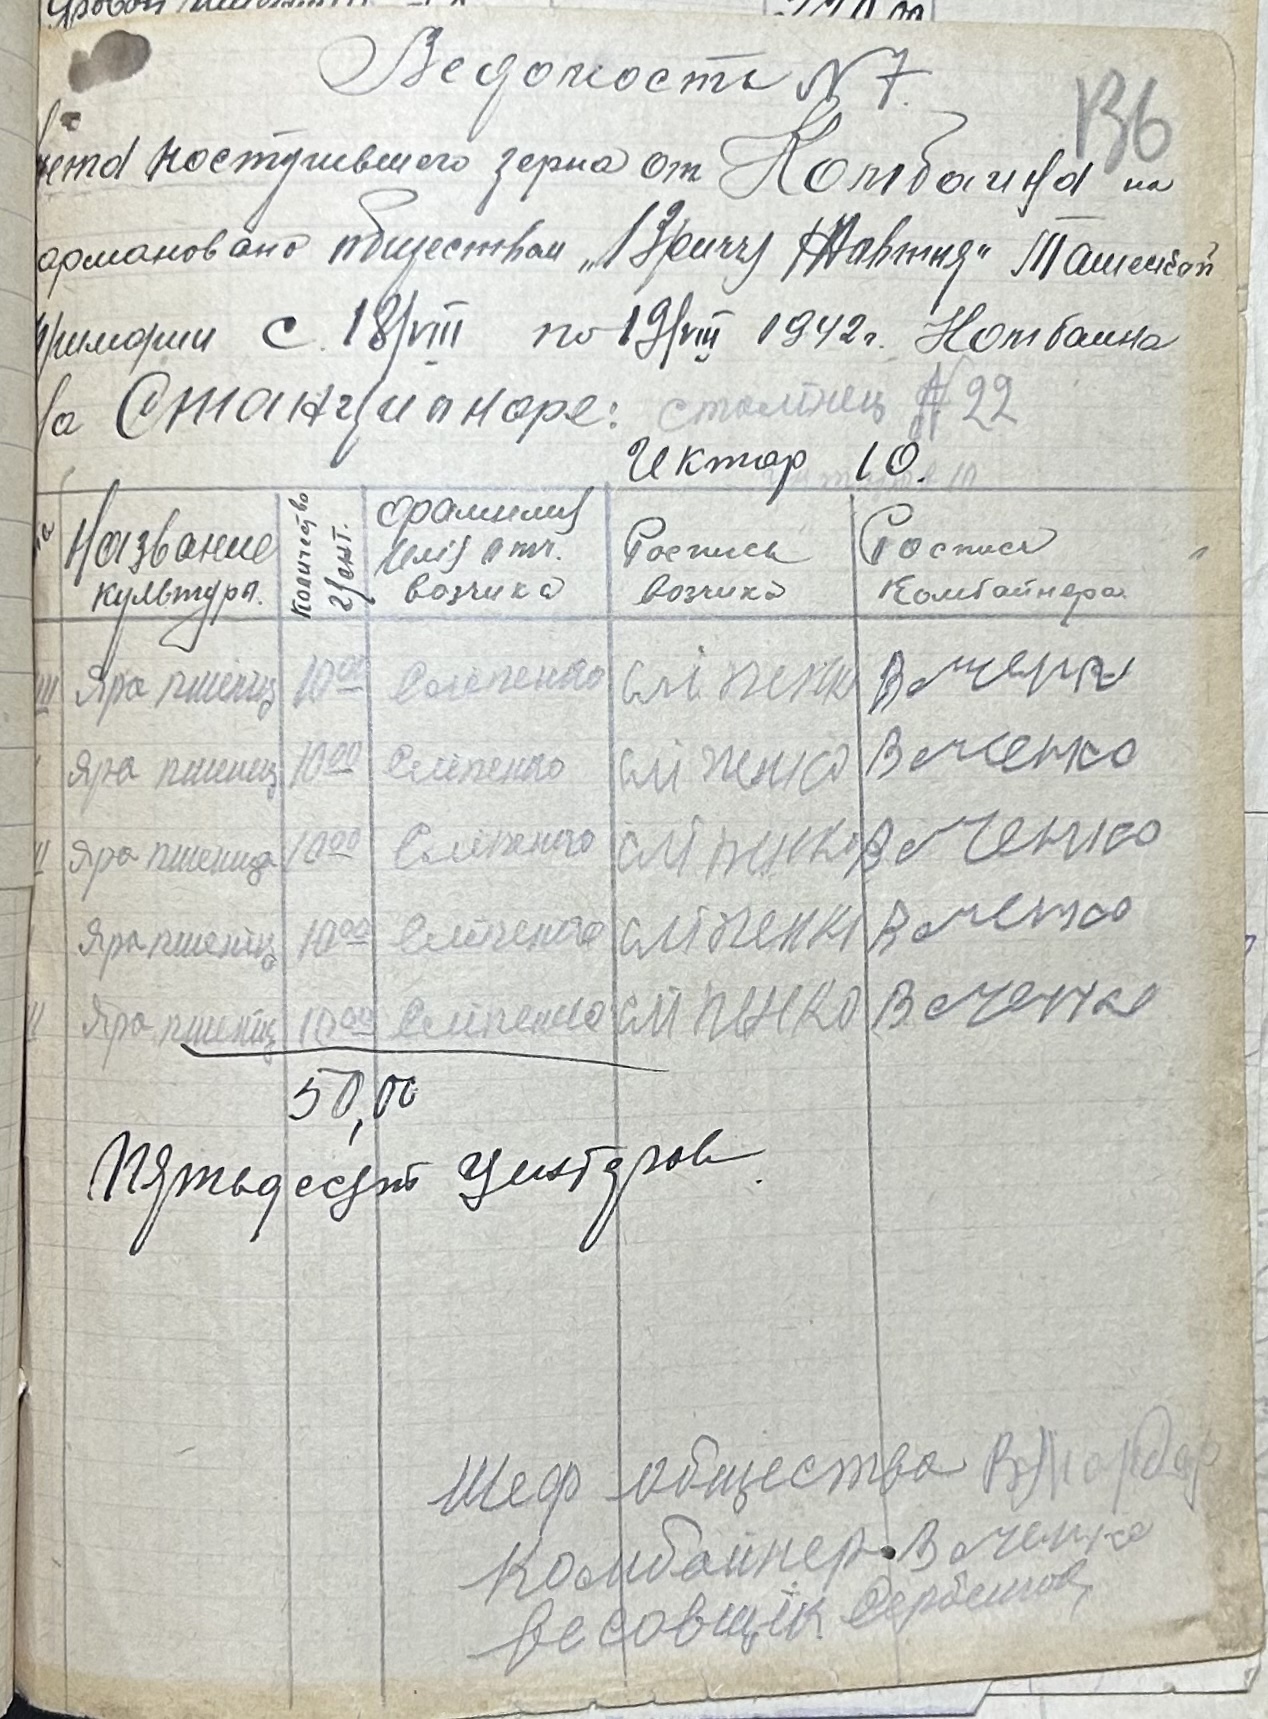 Ведомость N 7.
136
поступившего зерна от Комбайна на
армановано обществом „13 Партия"
с 18/VIII по 19/VIII 1942 г. Комбаина
на Станционаре: сталінец № 22
Гиктар 10.
Название культуры. Количество цент. Фамилия Имя отч. возчика Роспись возчика Роспись Комбайнера
Яра пшениц 10 00 Сліпенко сліпенко Вмченко
Яра пшениц 10 00 Сліпенко сліпенко Вмченко
Яра пшениця 10 00 Сліпенко сліпенко Вмченко
Яра пшениця 10 00 Сліпенко сліпенко Вмченко
Яра пшениц 10 00 Сліпенко сліпенко Вмченко
50,00
Пятьдесят центеров.
Шеф общества
Комбайнер Вмченко
Весовщік Сербенюк